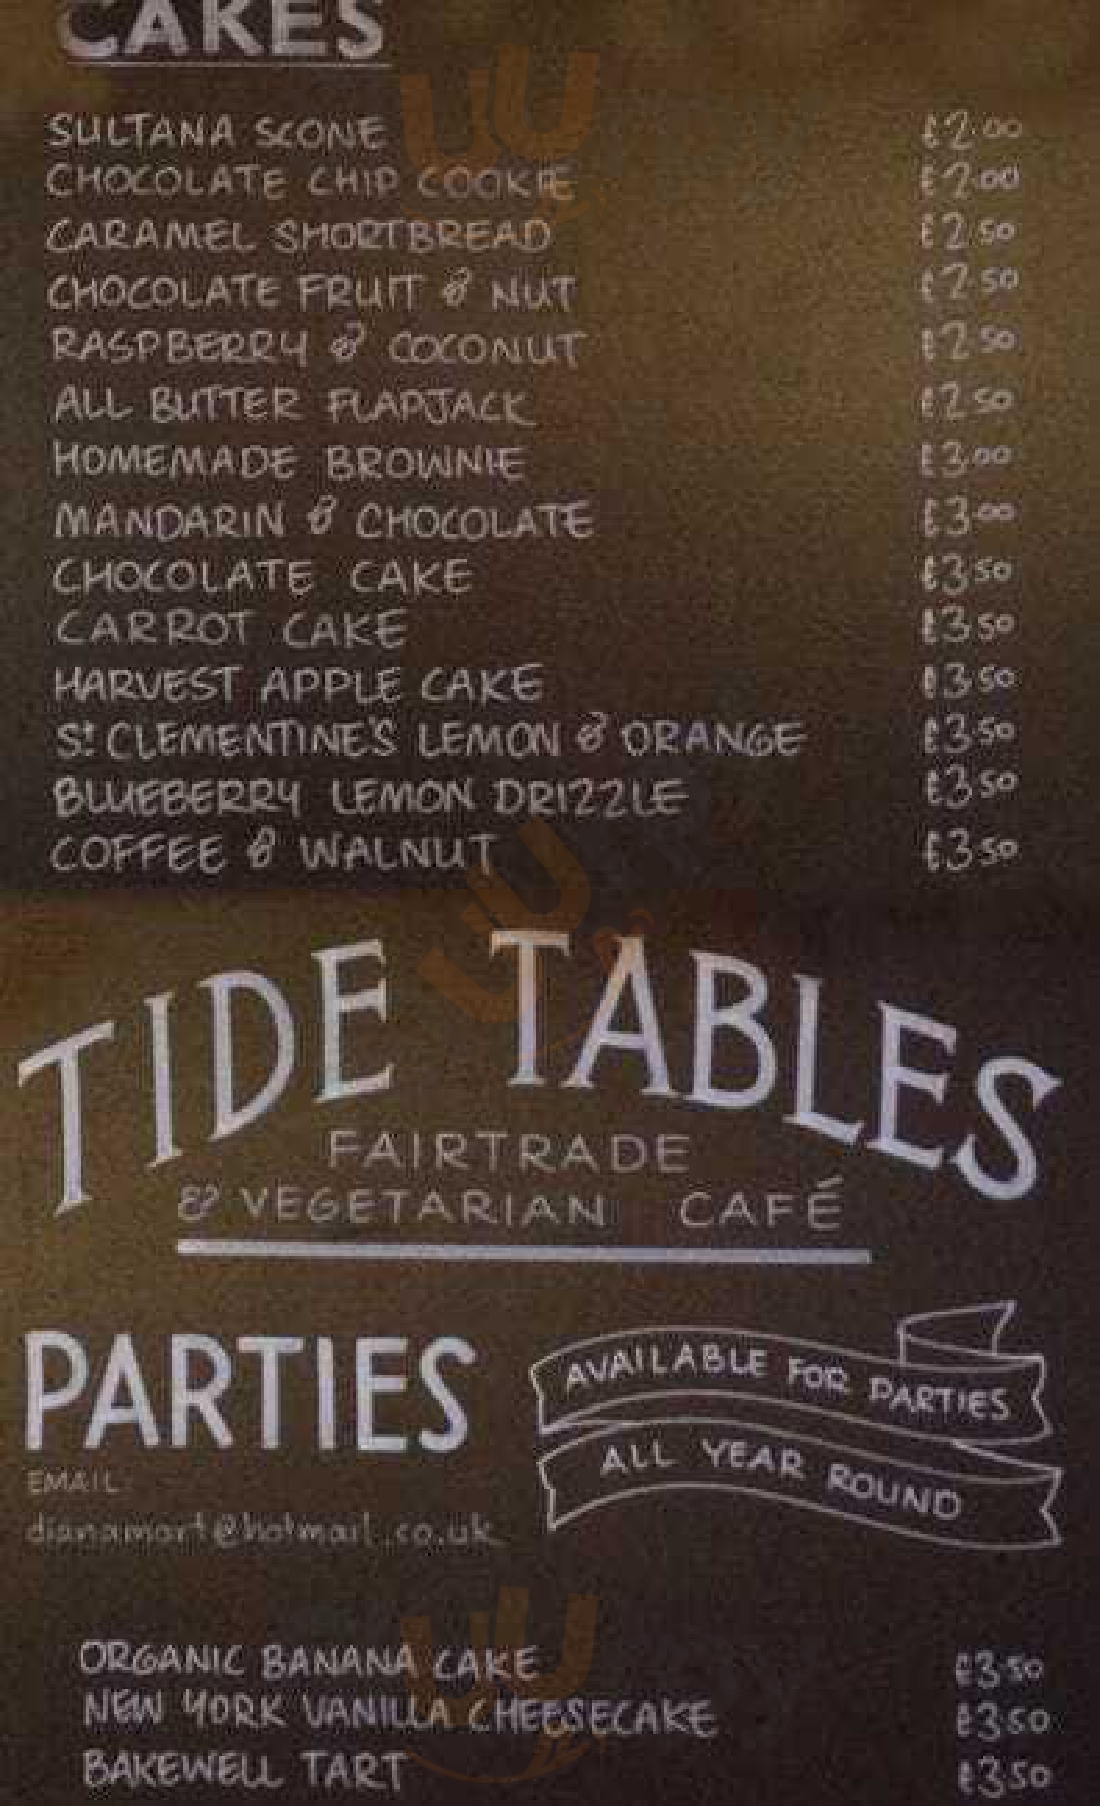 CAKES
SULTANA SCONE £2.00
CHOCOLATE CHIP COOKIE £2.00
CARAMEL SHORTBREAD £2.50
CHOCOLATE FRUIT & NUT £2.50
RASPBERRY & COCONUT £2.50
ALL BUTTER FLAPJACK £2.50
HOMEMADE BROWNIE £3.00
MANDARIN & CHOCOLATE £3.00
CHOCOLATE CAKE £3.50
CARROT CAKE £3.50
HARVEST APPLE CAKE £3.50
St CLEMENTINE'S LEMON & ORANGE £3.50
BLUEBERRY LEMON DRIZZLE £3.50
COFFEE & WALNUT £3.50
TIDE TABLES
FAIRTRADE
& VEGETARIAN CAFÉ
PARTIES
EMAIL:
dianamort@hotmail.co.uk
AVAILABLE FOR PARTIES
ALL YEAR ROUND
ORGANIC BANANA CAKE £3.50
NEW YORK VANILLA CHEESECAKE £3.50
BAKEWELL TART £3.50